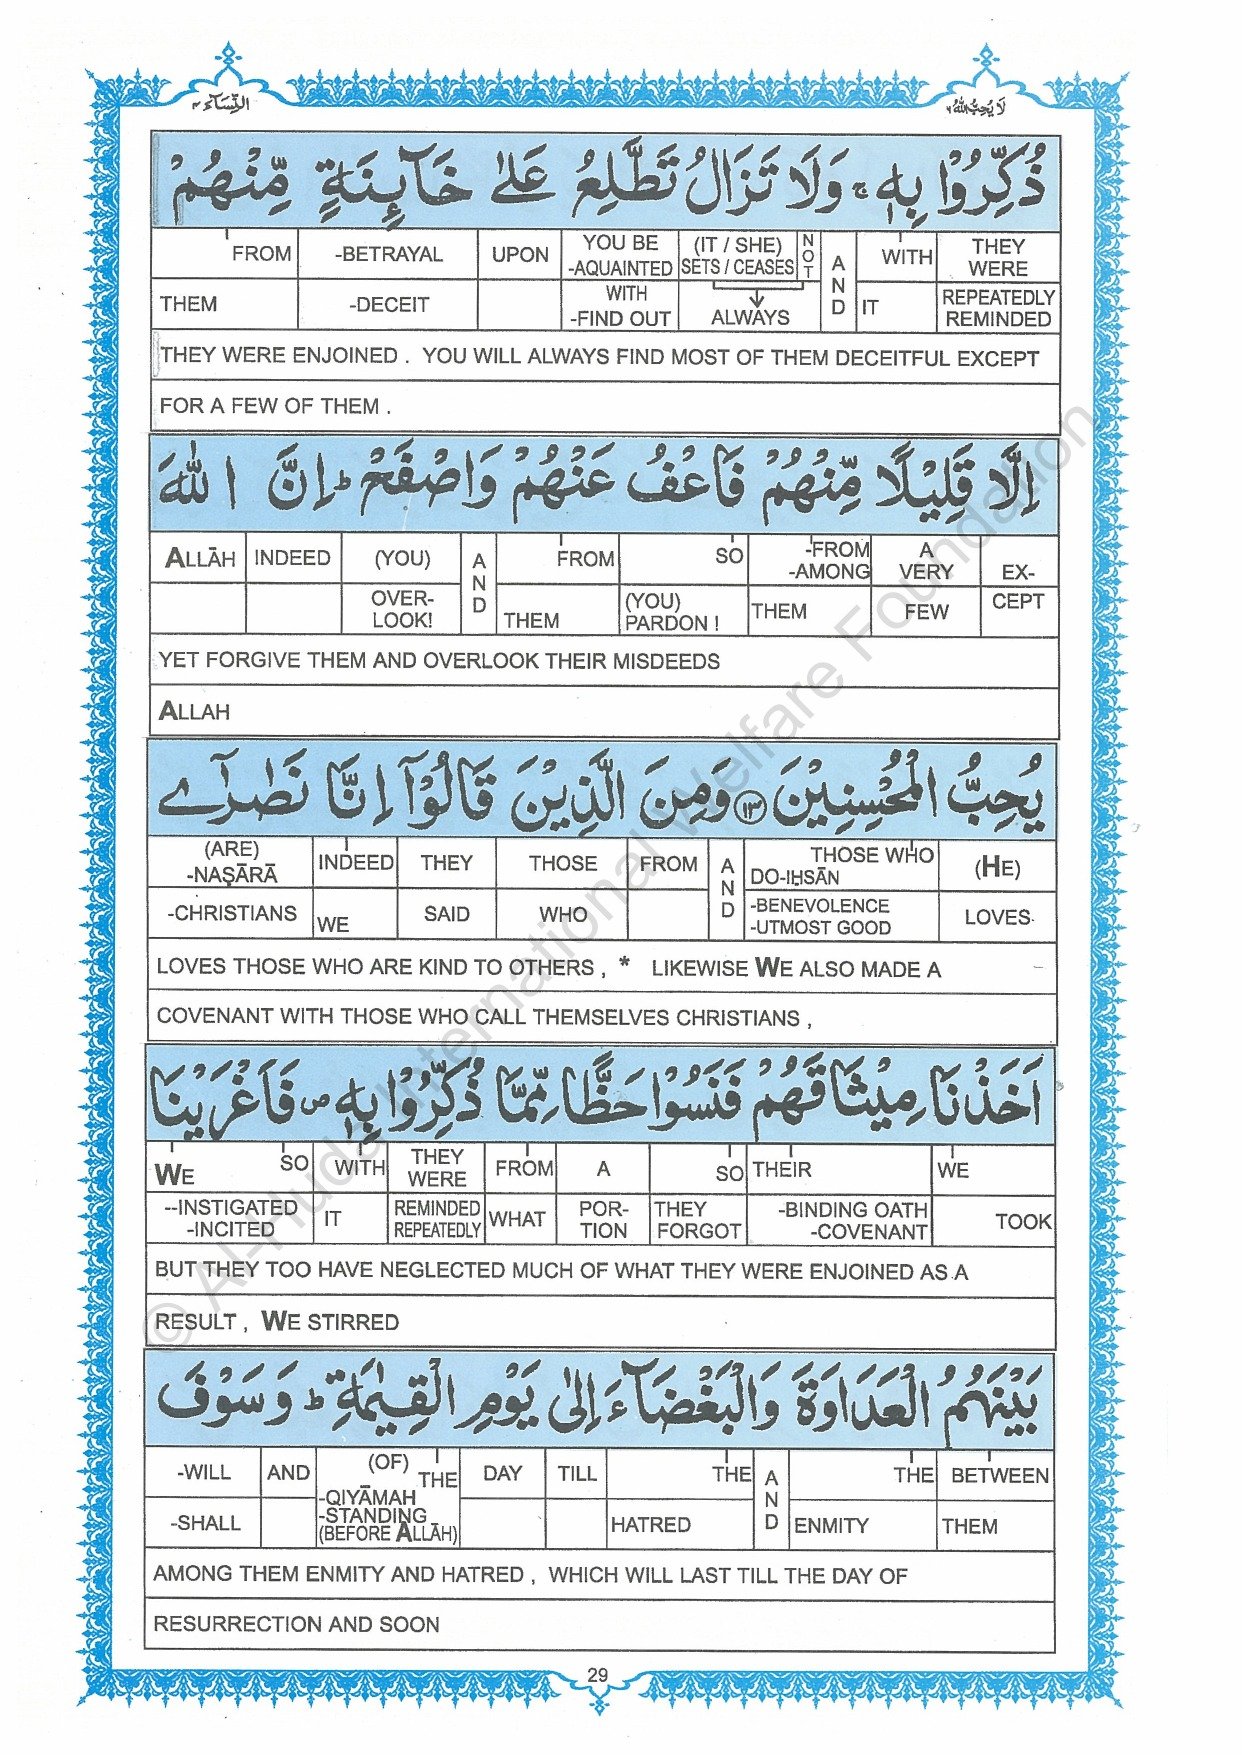 النِّسَآء ٤
لَا يُحِبُّ اللهُ ٦
ذُكِّرُوْا بِهٖ ۚ وَلَا تَزَالُ تَطَّلِعُ عَلٰى خَآئِنَةٍ مِّنْهُمْ
FROM -BETRAYAL UPON YOU BE -AQUAINTED (IT / SHE) SETS / CEASES NOT AND WITH THEY WERE
THEM -DECEIT WITH -FIND OUT ALWAYS IT REPEATEDLY REMINDED
THEY WERE ENJOINED . YOU WILL ALWAYS FIND MOST OF THEM DECEITFUL EXCEPT
FOR A FEW OF THEM .
اِلَّا قَلِيْلًا مِّنْهُمْ فَاعْفُ عَنْهُمْ وَاصْفَحْ ؕ اِنَّ اللهَ
ALLĀH INDEED (YOU) AND FROM SO -FROM -AMONG A VERY EX-
OVER-LOOK! THEM (YOU) PARDON ! THEM FEW CEPT
YET FORGIVE THEM AND OVERLOOK THEIR MISDEEDS
ALLAH
يُحِبُّ الْمُحْسِنِيْنَ ﴿١٣﴾ وَمِنَ الَّذِيْنَ قَالُوْٓا اِنَّا نَصٰرٰٓى
(ARE) -NAṢĀRĀ INDEED THEY THOSE FROM AND THOSE WHO DO-IḤSĀN (HE)
-CHRISTIANS WE SAID WHO -BENEVOLENCE -UTMOST GOOD LOVES
LOVES THOSE WHO ARE KIND TO OTHERS , * LIKEWISE WE ALSO MADE A
COVENANT WITH THOSE WHO CALL THEMSELVES CHRISTIANS ,
اَخَذْنَا مِيْثَاقَهُمْ فَنَسُوْا حَظًّا مِّمَّا ذُكِّرُوْا بِهٖ ۪ فَاَغْرَيْنَا
WE SO WITH THEY WERE FROM A SO THEIR WE
--INSTIGATED -INCITED IT REMINDED REPEATEDLY WHAT POR-TION THEY FORGOT -BINDING OATH -COVENANT TOOK
BUT THEY TOO HAVE NEGLECTED MUCH OF WHAT THEY WERE ENJOINED AS A
RESULT , WE STIRRED
بَيْنَهُمُ الْعَدَاوَةَ وَالْبَغْضَآءَ اِلٰى يَوْمِ الْقِيٰمَةِ ؕ وَسَوْفَ
-WILL AND (OF) THE DAY TILL THE AND THE BETWEEN
-SHALL -QIYĀMAH -STANDING (BEFORE ALLĀH) HATRED ENMITY THEM
AMONG THEM ENMITY AND HATRED , WHICH WILL LAST TILL THE DAY OF
RESURRECTION AND SOON
29
© Al-Huda International Welfare Foundation